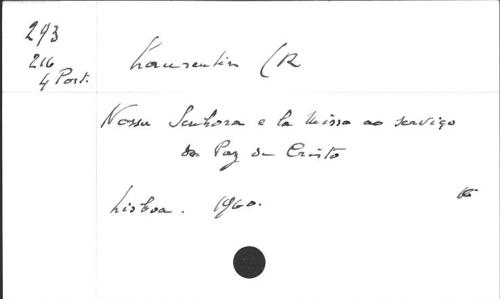 293
216
4 Port.
Laurentin (R
Nossa Senhora e la Missa ao serviço
da Paz de Cristo
Lisboa. 1960.